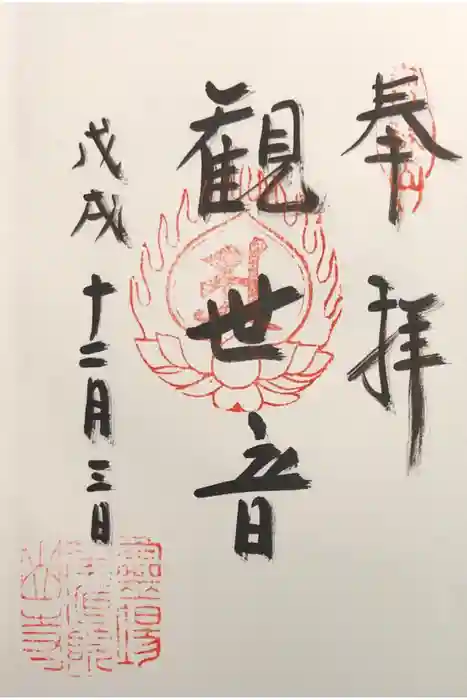 奉拝
観世音
戊戌 十二月 三日